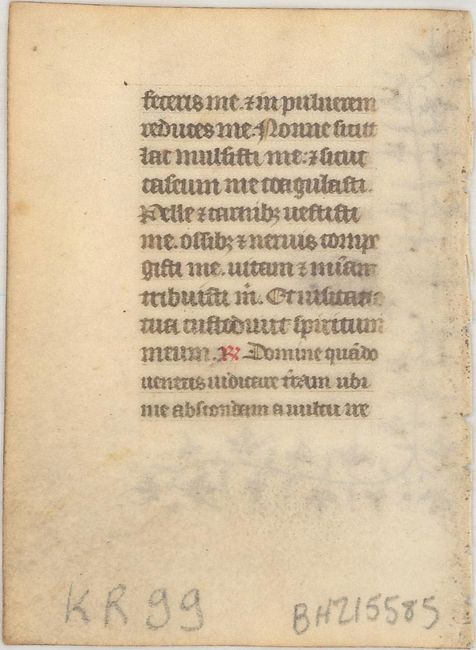 feceris me. ⁊ in puluerem
reduces me. Nonne sicut
lac mulsisti me: ⁊ sicut
caseum me coagulasti.
Pelle ⁊ carnibꝫ uestisti
me. ossibꝫ ⁊ neruis compe
gisti me. uitam ⁊ mīam
tribuisti m̄. Et uisitatio
tua custodiuit spiritum
meum. ℟ Domine quādo
ueneris iudicare t̄ram ubi
me abscondam a uultu ire
KR99
BH215585